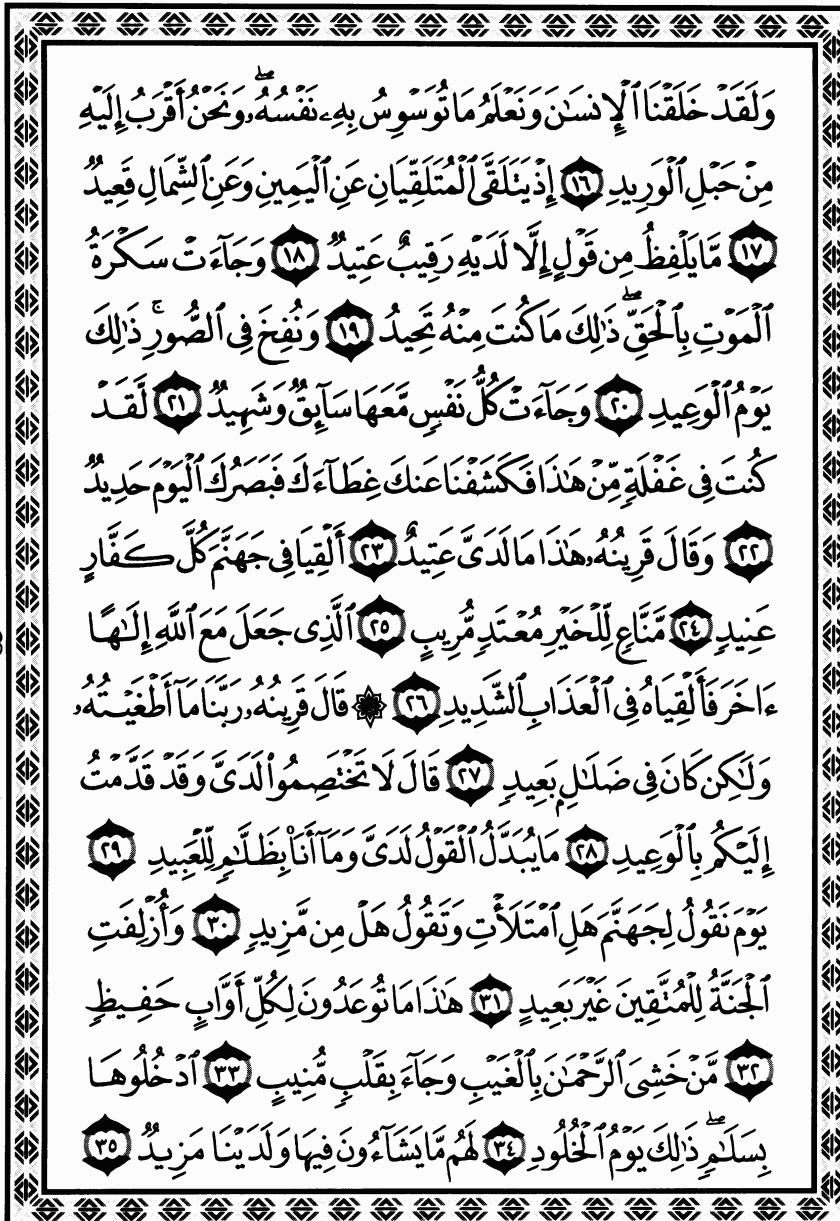 وَلَقَدْ خَلَقْنَا ٱلْإِنسَٰنَ وَنَعْلَمُ مَا تُوَسْوِسُ بِهِۦ نَفْسُهُۥ ۖ وَنَحْنُ أَقْرَبُ إِلَيْهِ
مِنْ حَبْلِ ٱلْوَرِيدِ ١٦ إِذْ يَتَلَقَّى ٱلْمُتَلَقِّيَانِ عَنِ ٱلْيَمِينِ وَعَنِ ٱلشِّمَالِ قَعِيدٌ
١٧ مَّا يَلْفِظُ مِن قَوْلٍ إِلَّا لَدَيْهِ رَقِيبٌ عَتِيدٌ ١٨ وَجَآءَتْ سَكْرَةُ
ٱلْمَوْتِ بِٱلْحَقِّ ۖ ذَٰلِكَ مَا كُنتَ مِنْهُ تَحِيدُ ١٩ وَنُفِخَ فِى ٱلصُّورِ ۚ ذَٰلِكَ
يَوْمُ ٱلْوَعِيدِ ٢٠ وَجَآءَتْ كُلُّ نَفْسٍ مَّعَهَا سَآئِقٌ وَشَهِيدٌ ٢١ لَّقَدْ
كُنتَ فِى غَفْلَةٍ مِّنْ هَٰذَا فَكَشَفْنَا عَنكَ غِطَآءَكَ فَبَصَرُكَ ٱلْيَوْمَ حَدِيدٌ
٢٢ وَقَالَ قَرِينُهُۥ هَٰذَا مَا لَدَىَّ عَتِيدٌ ٢٣ أَلْقِيَا فِى جَهَنَّمَ كُلَّ كَفَّارٍ
عَنِيدٍ ٢٤ مَّنَّاعٍ لِّلْخَيْرِ مُعْتَدٍ مُّرِيبٍ ٢٥ ٱلَّذِى جَعَلَ مَعَ ٱللَّهِ إِلَٰهًا
ءَاخَرَ فَأَلْقِيَاهُ فِى ٱلْعَذَابِ ٱلشَّدِيدِ ٢٦ ۞ قَالَ قَرِينُهُۥ رَبَّنَا مَآ أَطْغَيْتُهُۥ
وَلَٰكِن كَانَ فِى ضَلَٰلٍۭ بَعِيدٍ ٢٧ قَالَ لَا تَخْتَصِمُوا۟ لَدَىَّ وَقَدْ قَدَّمْتُ
إِلَيْكُم بِٱلْوَعِيدِ ٢٨ مَا يُبَدَّلُ ٱلْقَوْلُ لَدَىَّ وَمَآ أَنَا۠ بِظَلَّٰمٍ لِّلْعَبِيدِ ٢٩
يَوْمَ نَقُولُ لِجَهَنَّمَ هَلِ ٱمْتَلَأْتِ وَتَقُولُ هَلْ مِن مَّزِيدٍ ٣٠ وَأُزْلِفَتِ
ٱلْجَنَّةُ لِلْمُتَّقِينَ غَيْرَ بَعِيدٍ ٣١ هَٰذَا مَا تُوعَدُونَ لِكُلِّ أَوَّابٍ حَفِيظٍ
٣٢ مَّنْ خَشِىَ ٱلرَّحْمَٰنَ بِٱلْغَيْبِ وَجَآءَ بِقَلْبٍ مُّنِيبٍ ٣٣ ٱدْخُلُوهَا
بِسَلَٰمٍ ۖ ذَٰلِكَ يَوْمُ ٱلْخُلُودِ ٣٤ لَهُم مَّا يَشَآءُونَ فِيهَا وَلَدَيْنَا مَزِيدٌ ٣٥